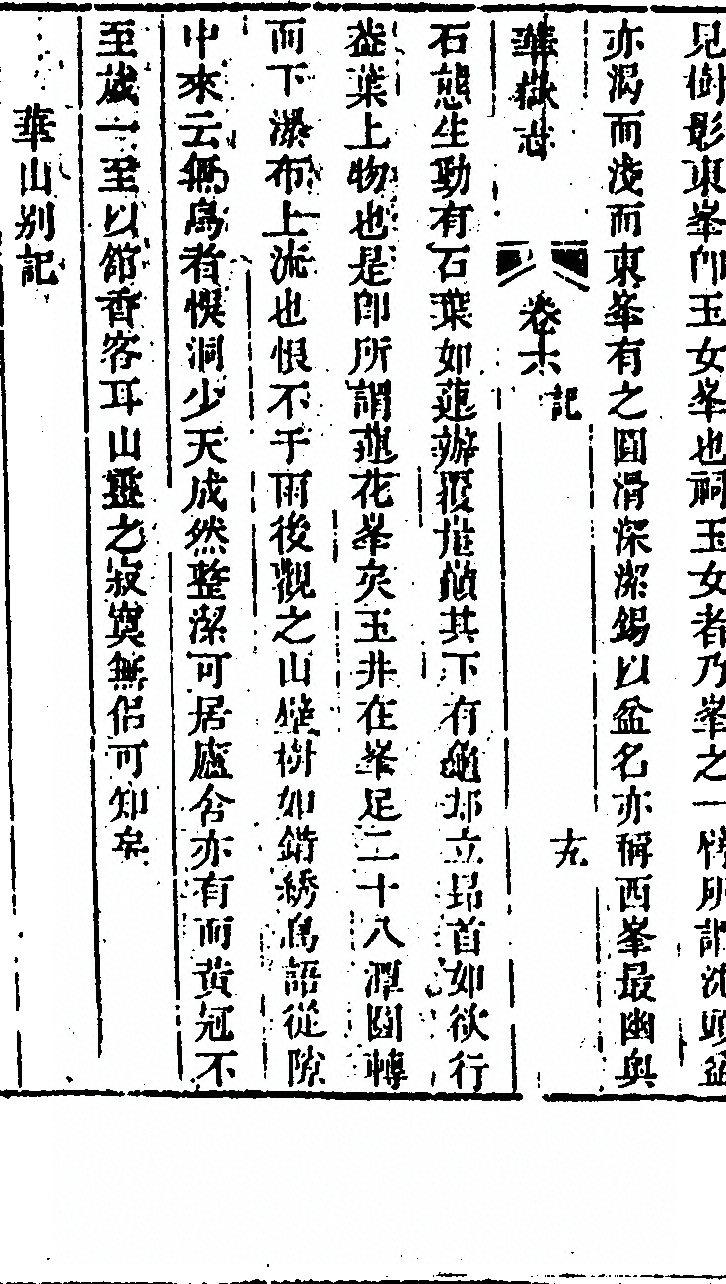 兒樹影東峯卽玉女峯也祠玉女者乃峯之一隣所謂洗頭盆
亦渴而淺而東峯有之圓滑深潔錫以盆名亦稱西峯最幽奥
華嶽志
卷六
記
石態生動有石葉如蓮瓣覆崖巓其下有龜却立昻首如欲行
葢葉上物也是卽所謂蓮花峯矣玉井在峯足二十八潭圓轉
而下瀑布上流也恨不于雨後觀之山壁樹如錯綉鳥語從隙
中來云無鳥者悞洞少天成然整潔可居廬舍亦有而黄冠不
至歲一至以餾香客耳山靈之寂寞無侣可知矣
華山别記